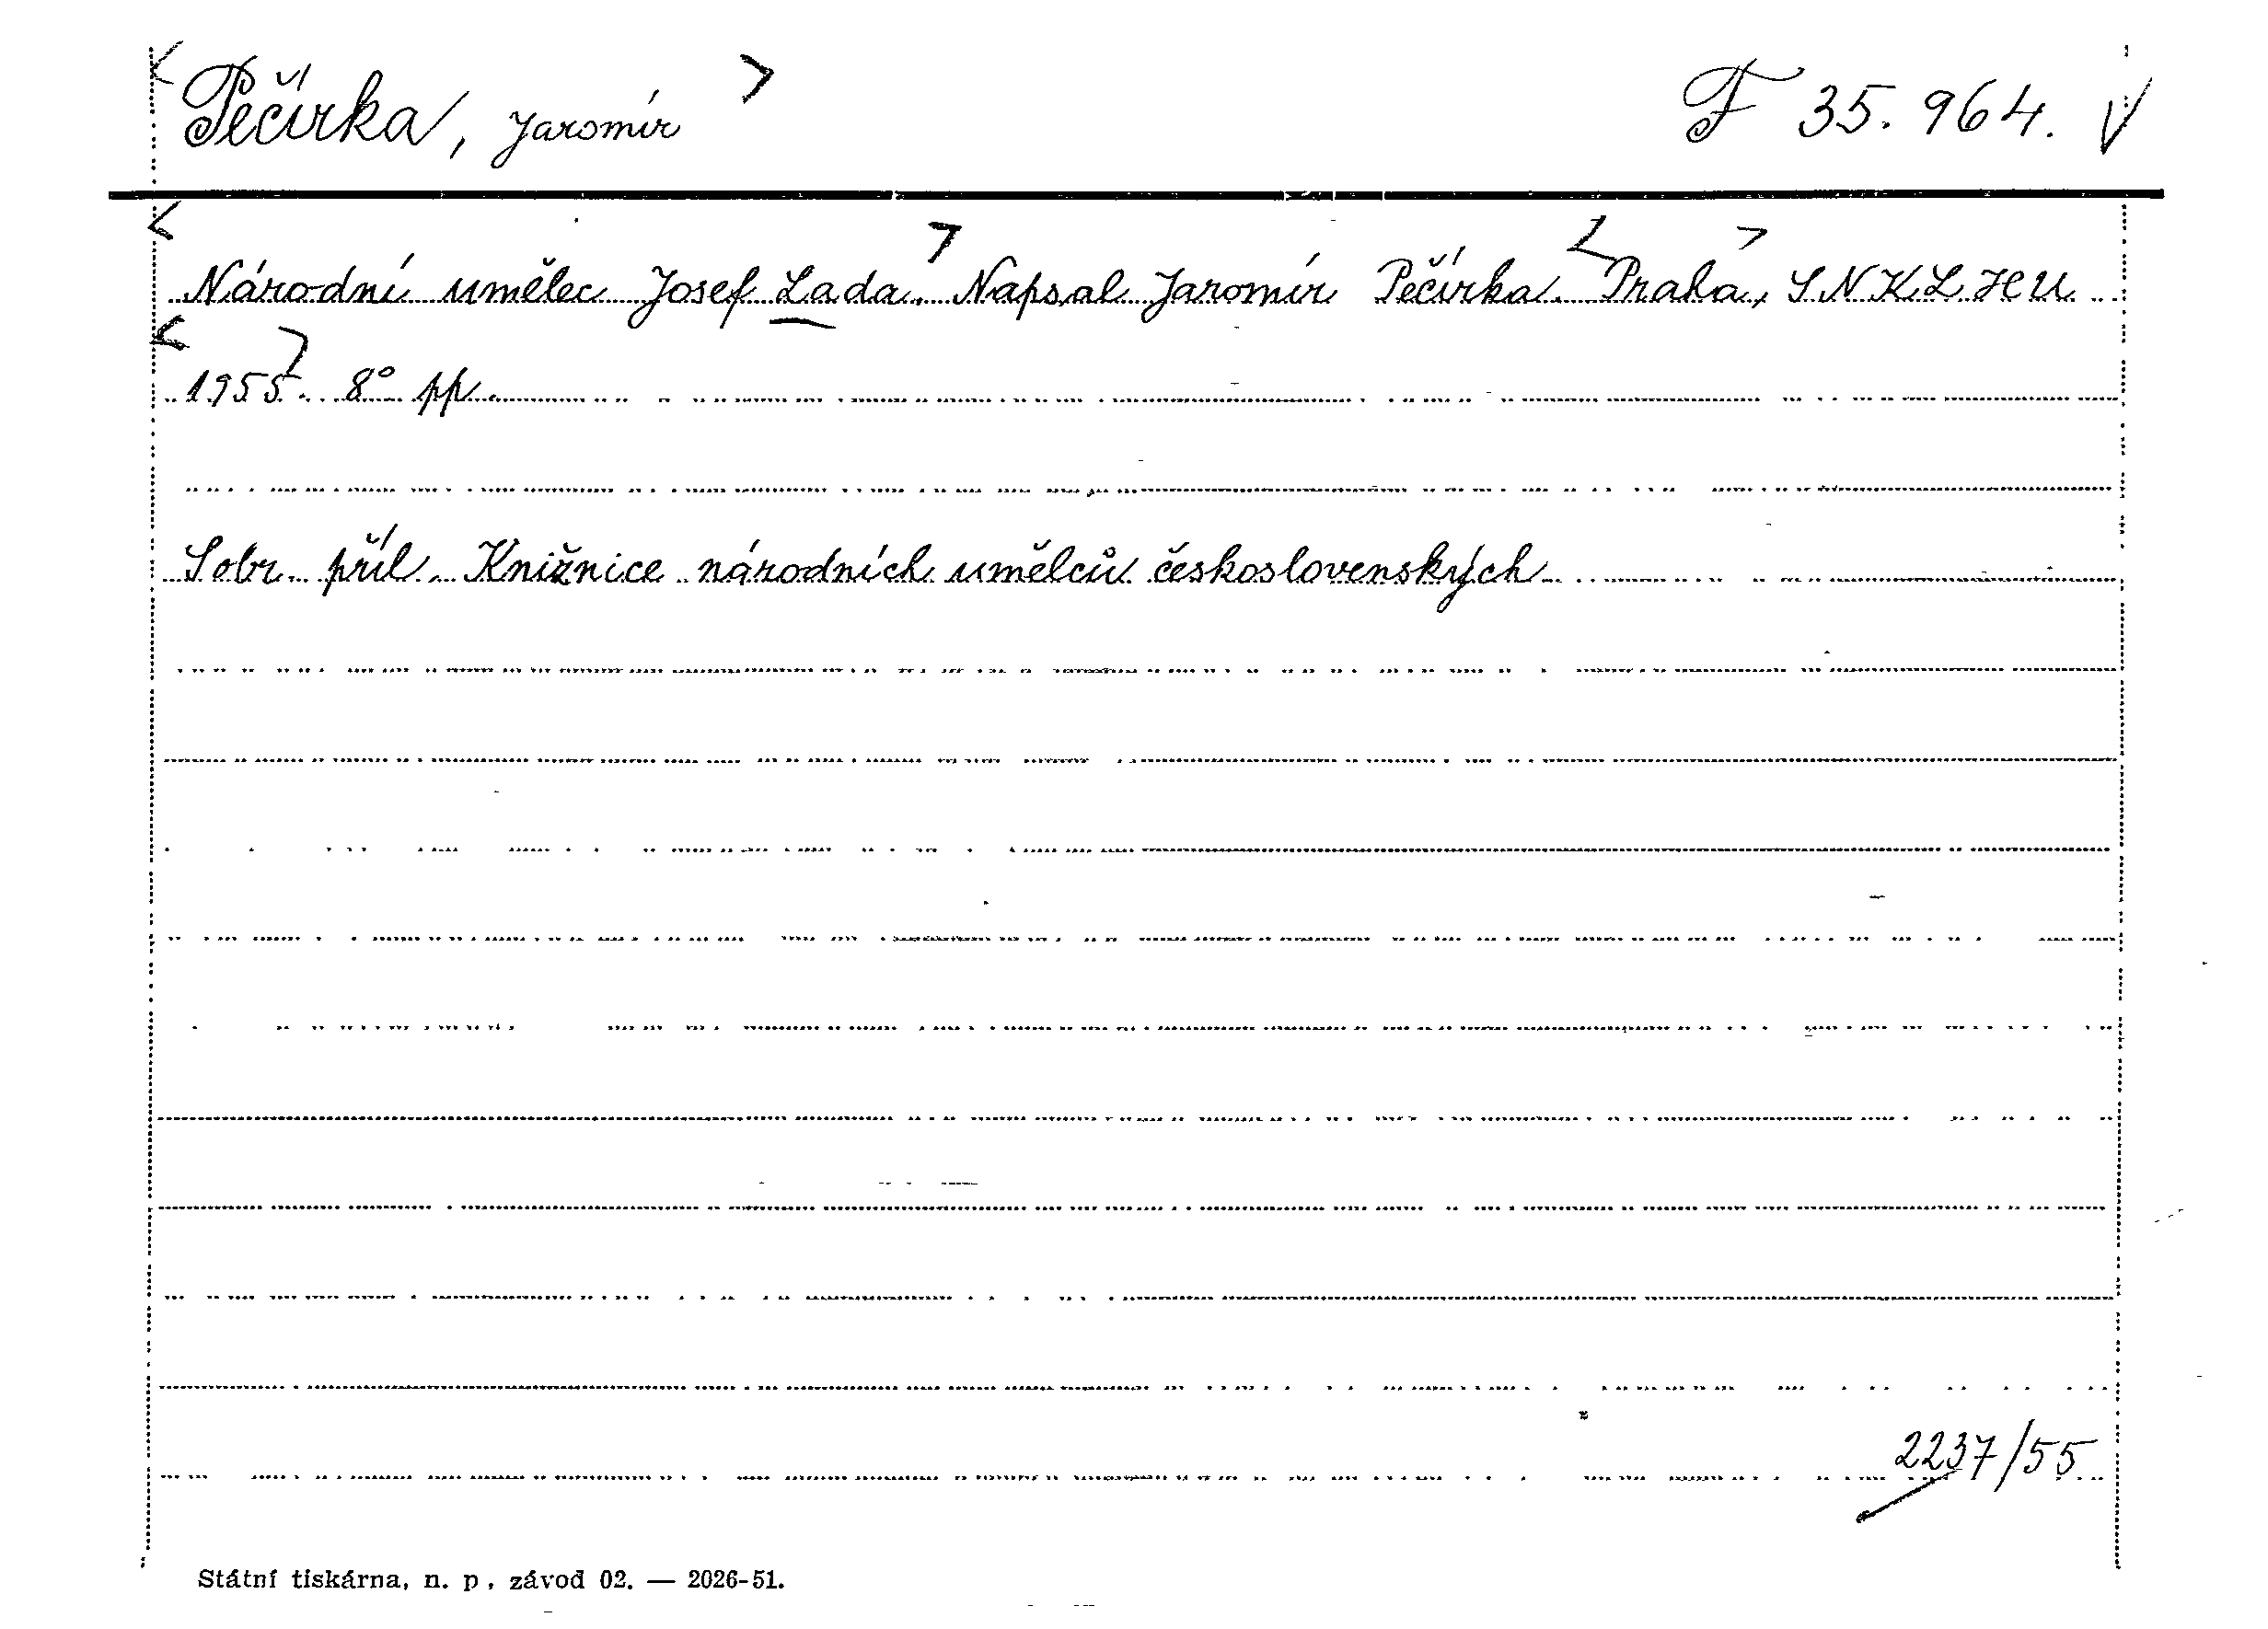 < Pečírka, Jaromír > F 35.964. V
< Národní umělec Josef Lada. > Napsal Jaromír Pečírka. < Praha, > SNKLHU
< 1955 >. 8° pp.
Sobr. příl. Knižnice národních umělců československých
2237/55
Státní tiskárna, n. p., závod 02. — 2026-51.